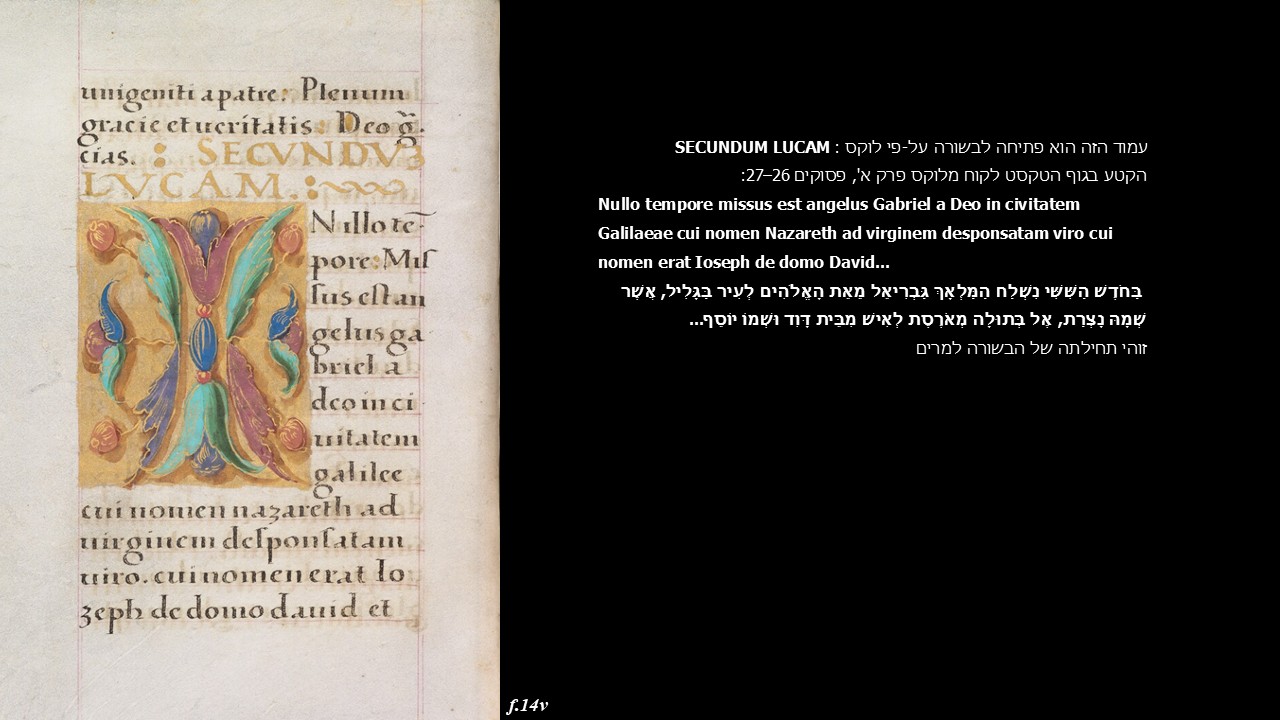 unigeniti a patre: Plenum
gracie et ueritatis: Deo g̃.
cias. : SECVNDVƷ
LVCAM. :
Nullo tē-
pore: Miſ
ſus eſt an
gelus ga
briel a
deo in ci
uitatem
galilee
cui nomen nazareth ad
uirginem deſponſatam
uiro. cui nomen erat Io
zeph de domo dauid et
עמוד הזה הוא פתיחה לבשורה על-פי לוקס : SECUNDUM LUCAM
הקטע בגוף הטקסט לקוח מלוקס פרק א', פסוקים 26–27:
Nullo tempore missus est angelus Gabriel a Deo in civitatem
Galilaeae cui nomen Nazareth ad virginem desponsatam viro cui
nomen erat Ioseph de domo David...
בַּחֹדֶשׁ הַשִּׁשִּׁי נִשְׁלַח הַמַּלְאָךְ גַּבְרִיאֵל מֵאֵת הָאֱלֹהִים לְעִיר בַּגָּלִיל, אֲשֶׁר
שְׁמָהּ נָצְרַת, אֶל בְּתוּלָה מְאֹרֶסֶת לְאִישׁ מִבֵּית דָּוִד וּשְׁמוֹ יוֹסֵף...
זוהי תחילתה של הבשורה למרים
f.14v